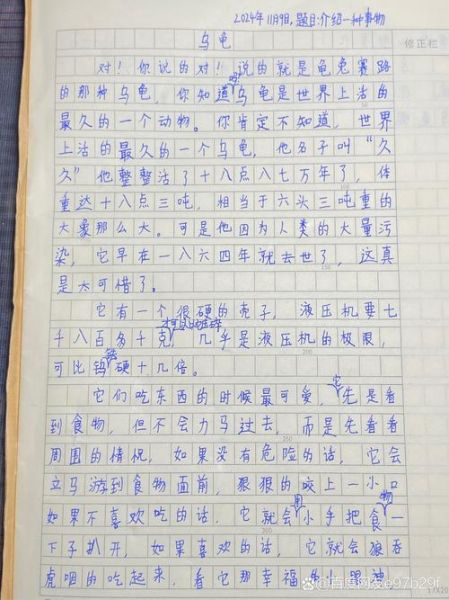 2024年11月9日,题目:介绍一种事物
修正栏
乌龟
对！你说的对！说的就是龟兔赛路
的那种乌龟，你知道吗乌龟是世界上活的
最久的一个动物。你肯定不知道，世界
上活的最久的一个乌龟，他名子叫“久
久”他整整活了十八点八七万年了，体
重达十八点三吨，相当于六头三吨重的
大象那么大。可是他因为人类的大量污
染，它早在一八六四年就去世了，这真
是太可惜了。
它有一个很硬的壳子，液压机要七
千八百多千克才可以的压碎，几乎是液压机的极限，
可比钨硬十几倍。
它们吃东西的时候最可爱，它先是看
到食物，但不会力马过去，而是先看看
周围的情况，如果没有危险的话，它会
立马游到食物面前，狠狠的咬上一小口
如果不喜欢吃的话，它就会用小手把食物一
下子扒开，如果喜欢的话，它就会狼吞
虎咽的吃起来，看它那幸福的